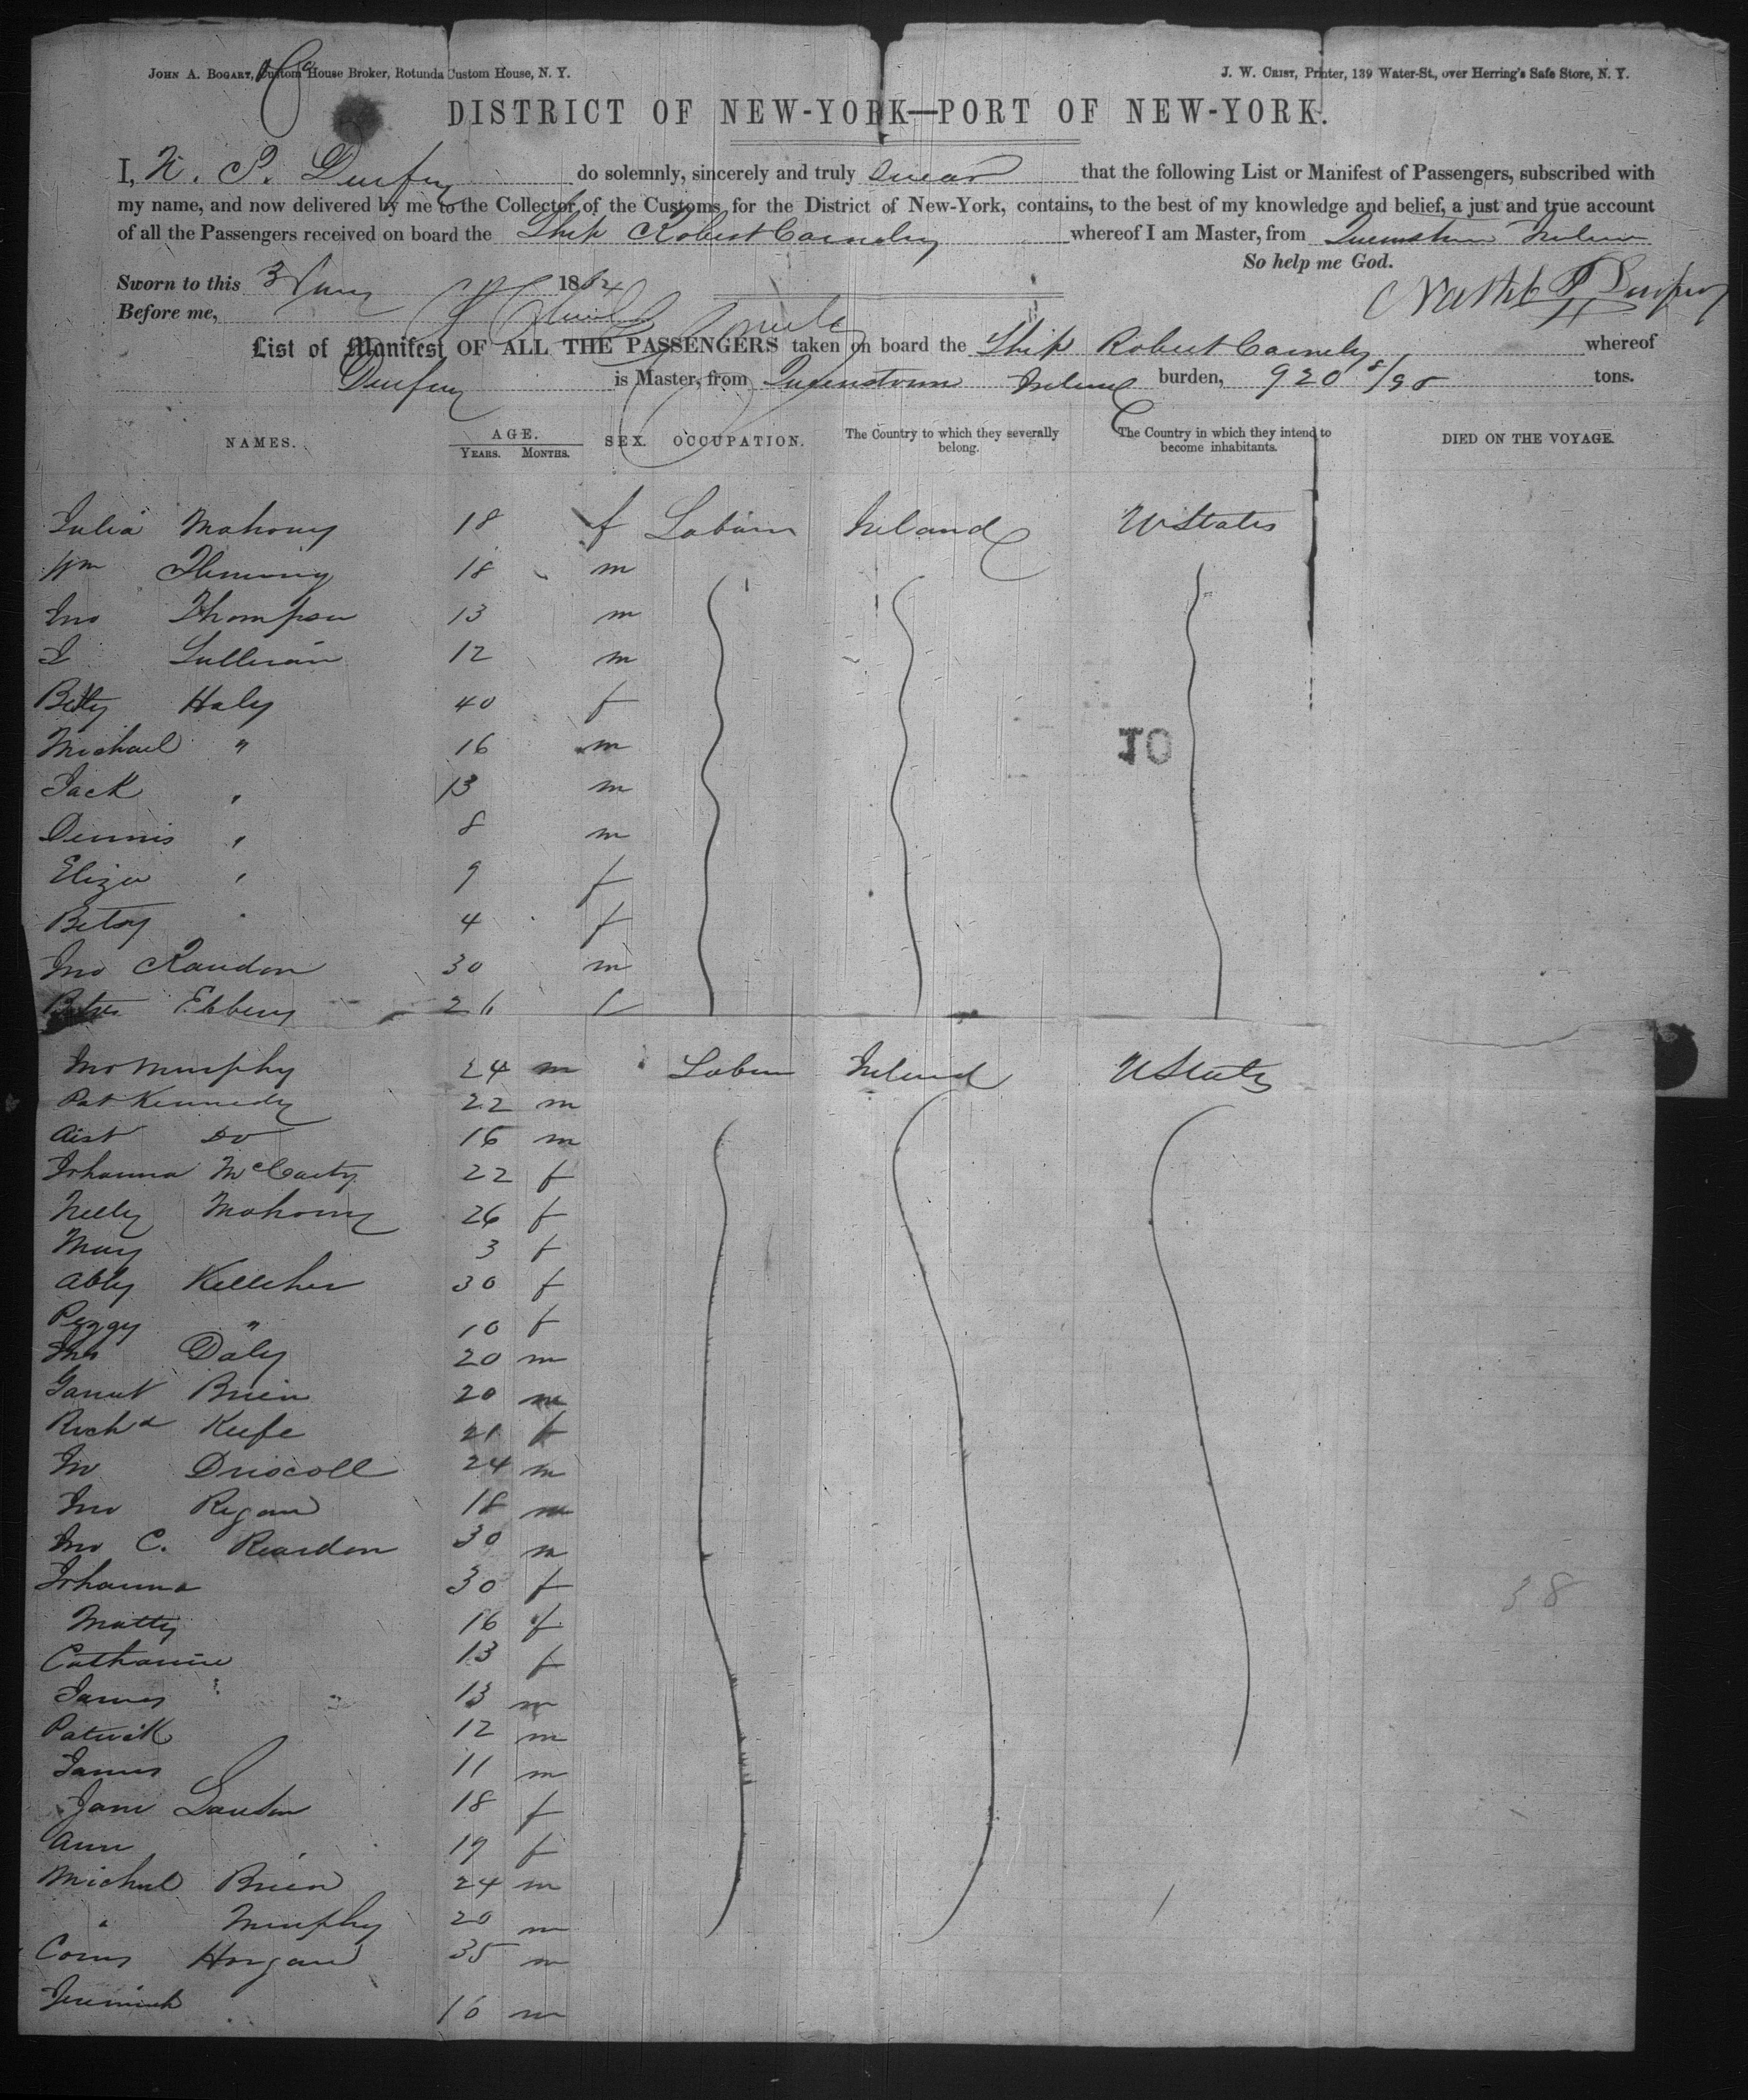 JOHN A. BOGART, Custom House Broker, Rotunda Custom House, N. Y.
J. W. CRIST, Printer, 139 Water-St., over Herring's Safe Store, N. Y.
DISTRICT OF NEW-YORK—PORT OF NEW-YORK.
I, N. P. Durfey do solemnly, sincerely and truly swear that the following List or Manifest of Passengers, subscribed with
my name, and now delivered by me to the Collector of the Customs for the District of New-York, contains, to the best of my knowledge and belief, a just and true account
of all the Passengers received on board the Ship Robert whereof I am Master, from Queenstown Ireland
So help me God.
Sworn to this 3 186
Before me,
List of Manifest OF ALL THE PASSENGERS taken on board the Ship Robert whereof
Durfey is Master, from Queenstown Ireland burden, 920 tons.
NAMES. AGE. SEX. OCCUPATION. The Country to which they severally belong. The Country in which they intend to become inhabitants. DIED ON THE VOYAGE.
YEARS. MONTHS.
Julia Mahony 18 f Ireland U States
Wm Fleming 18 m
Jno Thompson 13 m
J Sullivan 12 m
Betty Haly 40 f
Michael " 16 m
10
Jack " 13 m
Dennis " 8 m
Eliza " 9 f
Betsy " 4 f
Jno 30 m
26 f
Jno Murphy 24 m Ireland U States
Pat Kennedy 22 m
Do 16 m
Johanna McCarty 22 f
Nelly Mahony 26 f
Mary 3 f
Abby Kelleher 30 f
Peggy " 10 f
Daly 20 m
Garret Brien 20 m
Richd Keefe 21 f
Jno Driscoll 24 m
Jno Regan 18 m
Jno C. Reardon 30 m
Johanna 30 f
38
Matty 16 f
Catharine 13 f
James " 13 m
Patrick 12 m
James 11 m
Jane 18 f
Ann 17 f
Michael Brien 24 m
" Murphy 20 m
Corns Horgan 35 m
Jeremiah 16 m